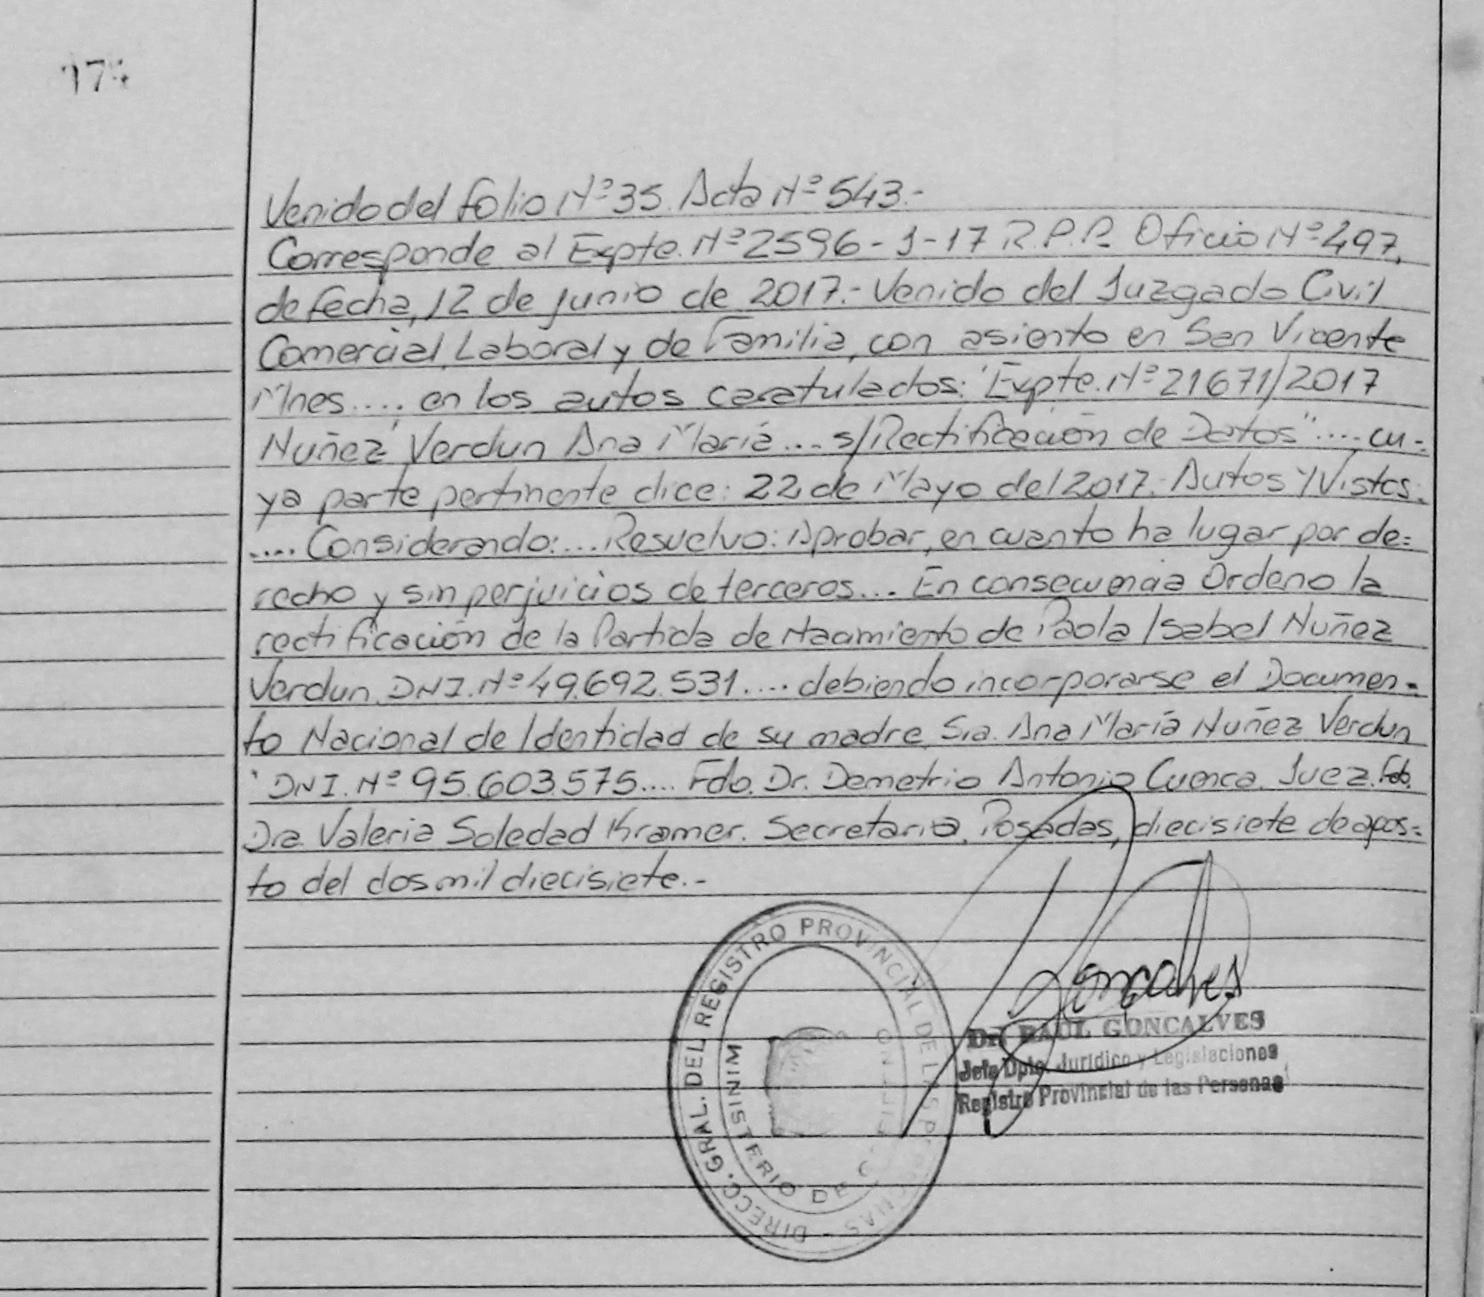 Venido del folio Nº 35. Acta Nº 543.-
Corresponde al Expte. Nº 2596-J-17 R.P.P. Oficio Nº 497,
de fecha, 12 de junio de 2017.- Venido del Juzgado Civil
Comercial, Laboral y de Familia, con asiento en San Vicente
Mnes.... en los autos caratulados: "Expte. Nº 21671/2017
Nuñez Verdun Ana María.... s/Rectificación de Datos".... cu-
ya parte pertinente dice: 22 de Mayo del 2017. Autos y Vistos:
.... Considerando:... Resuelvo: Aprobar, en cuanto ha lugar por de=
recho y sin perjuicios de terceros... En consecuencia Ordeno la
rectificación de la Partida de Nacimiento de Paola Isabel Nuñez
Verdun DNI. Nº 49.692.531.... debiendo incorporarse el Documen=
to Nacional de Identidad de su madre Sra. Ana María Nuñez Verdun
DNI. Nº 95.603.575.... Fdo. Dr. Demetrio Antonio Cuenca. Juez. Fdo.
Dra. Valeria Soledad Kramer. Secretaria. Posadas, diecisiete de agos=
to del dos mil diecisiete.-
DIRECC. GRAL. DEL REGISTRO PROVINCIAL DE LAS
MINISTERIO DE
Goncalves
Dr. RAUL GONCALVES
Jefe Dpto. Jurídico y Legislaciones
Registro Provincial de las Personas